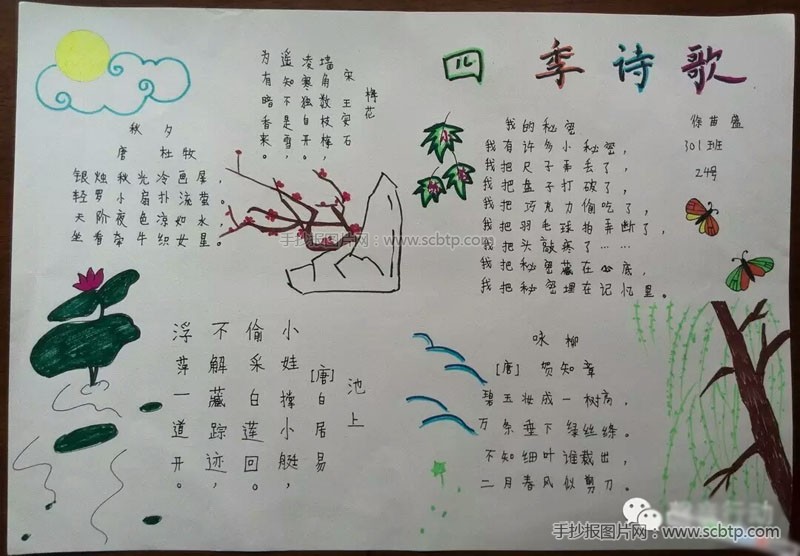 四季诗歌
秋夕
唐 杜牧
银烛秋光冷画屏，
轻罗小扇扑流萤。
天阶夜色凉如水，
坐看牵牛织女星。
梅花
宋 王安石
墙角数枝梅，
凌寒独自开。
遥知不是雪，
为有暗香来。
我的秘密
我有许多小秘密，
我把尺子弄丢了，
我把盘子打破了，
我把巧克力偷吃了，
我把羽毛球拍弄断了，
我把头敲疼了……
我把秘密藏在心底，
我把秘密埋在记忆里。
徐苗盛
301班
24号
池上
[唐]白居易
小娃撑小艇，
偷采白莲回。
不解藏踪迹，
浮萍一道开。
咏柳
[唐] 贺知章
碧玉妆成一树高，
万条垂下绿丝绦。
不知细叶谁裁出，
二月春风似剪刀。
手抄报图片网：www.scbtp.com
手抄报图片网：www.scbtp.com